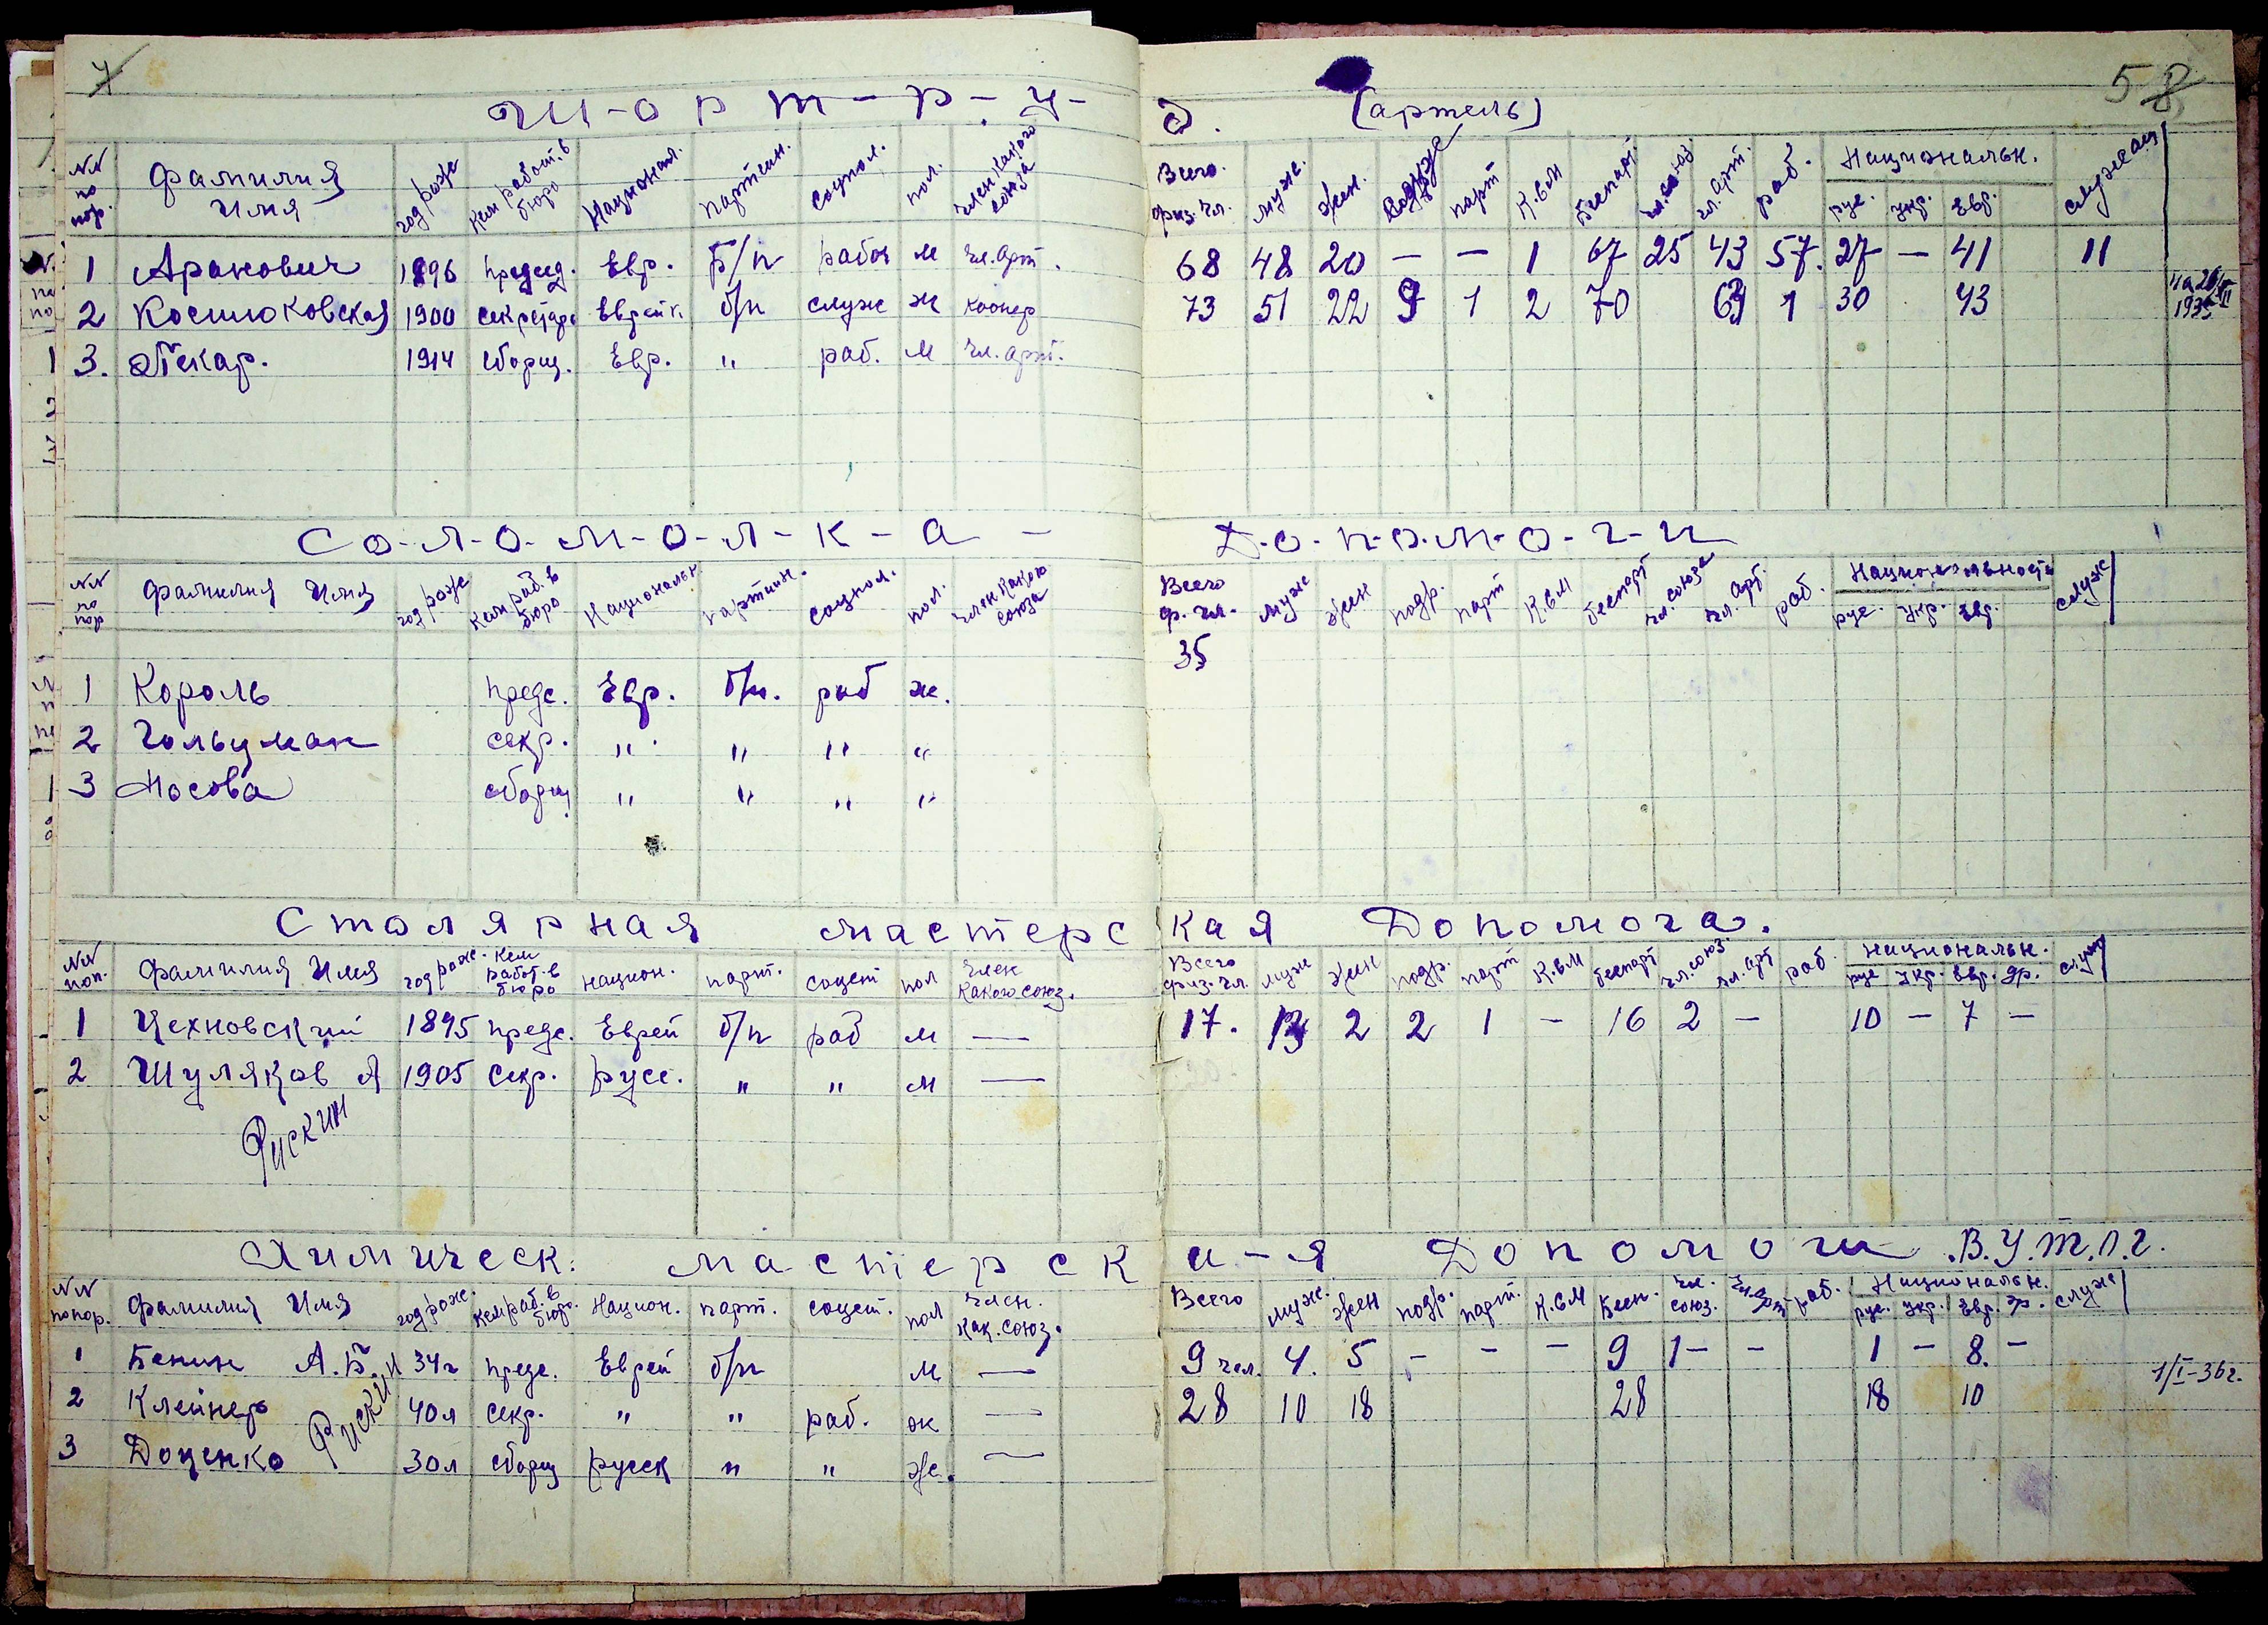 7 58
Ш-о р т-р-у-д. (артель)
NN по пор. Фамилия Имя год рожд Кем работ. в бюро Национал. Партийн. соцпол. пол. член какого союза Всего. физ. чл. муж. Жен. парт К.С.М Беспарт. чл. союз. чл. арт. раб. Национальн. рус. укр. Евр. служащ
1 Аронович 1896 председ. Евр. Б/п рабоч м чл. арт. 68 48 20 — — 1 67 25 43 57. 27 — 41 11
2 1900 секретарь Еврейк. б/п служ ж коопер 73 51 22 9 1 2 70 1 30 43
3. Пекар. 1914 сборщ. Евр. " раб. м чл. арт.
С-о-л-о-м-о-л-к-а- Д-о-п-о-м-о-г-и
NN по пор Фамилия Имя год рожд Кем раб. в бюро Национальн партийн. соцпол. пол. член какого союза Всего ф. чл. муж Жен подр. парт К.С.М беспарт чл. союза чл. арт. раб. Национальность рус. Укр. Евр. служ
35
1 Король предс. Евр. б/п. раб ж.
2 Гольцман секр. " " " "
3 Носова сборщ " " " "
Столярная мастерская Допомога.
NN поп. Фамилия Имя год рожд. Кем работ. в бюро национ. парт. соцсот пол Член какого союз. Всего физ. чл. муж Жен подр. парт К.С.М беспарт чл. союз. чл. арт раб. национальн. рус укр. Евр. др. служ
1 Цехновский 1895 предс. Еврей б/п раб м — 17. 2 2 1 — 16 2 — 10 — 7 —
2 Шуляков Я 1905 секр. русс. " " м —
Рискин
Химическ. мастерск а-я Допомоги .В.У.Т.О.Г.
NN по пор. Фамилия Имя год рож. Кем раб. в бюро. Национ. парт. соцсот. пол Член. как. союз. Всего муж. Жен подр. парт. К.С.М Бесп. Чл. союз. Чл. арт раб. Национальн. рус. укр. Евр. др. служ
1 Бенин А.Б. 34г предс. Еврей б/п м — 9 чел. 4. 5 — — — 9 1— — 1 — 8. —
2 Клейнер 40л секр. " " раб. ж — 28 10 18 28 18 10 1/I-36г.
Рискин
3 Доценко 30л сборщ русск " " ж. —